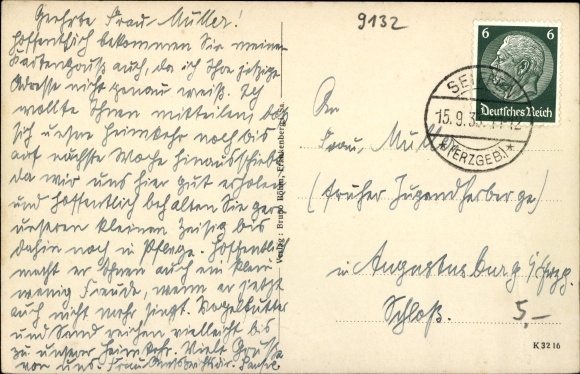 Geehrte Frau Müller!
Hoffentlich bekommen Sie meinen
Kartengruß auch, da ich Ihre jetzige
Adresse nicht genau weiß. Ich
wollte Ihnen mitteilen, daß
sich unsere Heimkehr noch bis
auf nächste Woche hinausschiebt
da wir uns hier gut erholen
und hoffentlich behalten Sie gern
unseren kleinen Zeisig bis
dahin noch in Pflege. Hoffentl.
macht er Ihnen auch ein klein
wenig Freude, wenn er jetzt
auch nicht mehr singt. Vogelfutter
und Sand reichen vielleicht bis
zu unserer Heimkehr. Viele Grüße
von uns. Frau
9132
Verlag: Bruno Böhm, Frankenberg
6 6
Deutsches Reich
15.9.3
(ERZGEB.)
An
Frau Müller
(früher Jugendherberge)
in Augustusburg i/Erzg.
Schloß.
5,-
K 3216